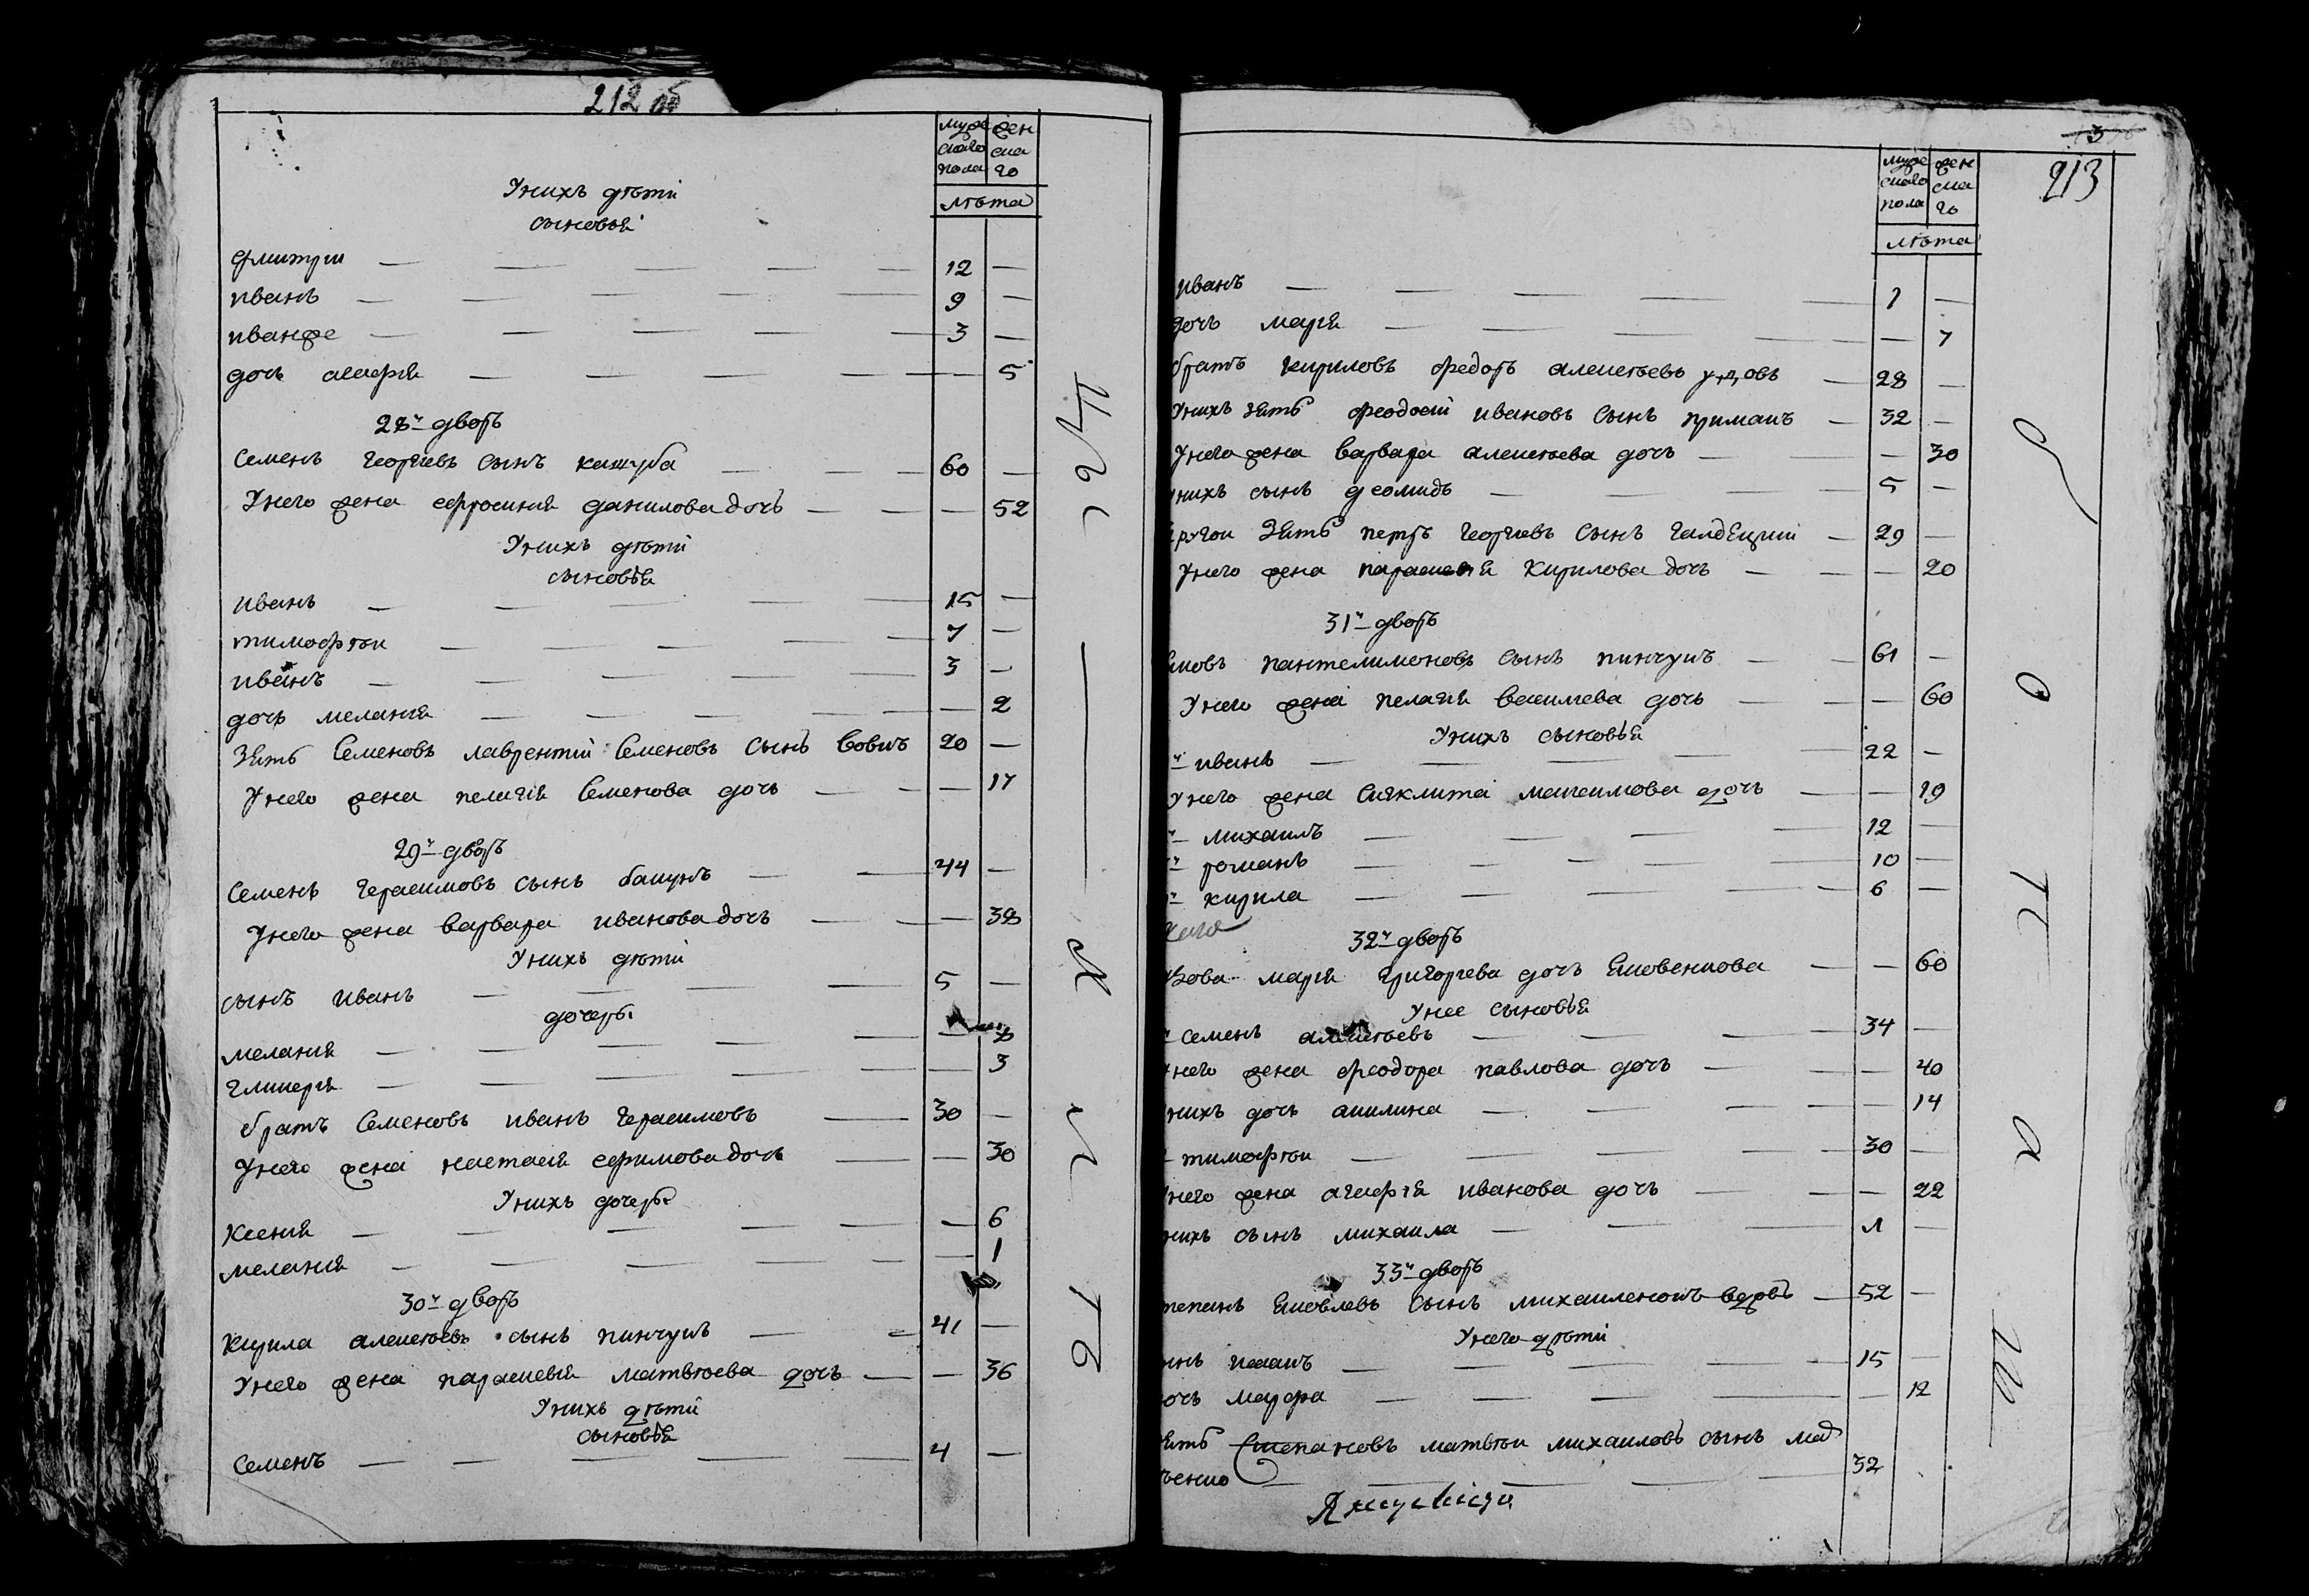 212 об
муже
скаго
пола
жен
ска
го
лѣта
У нихъ дѣти
сыновья
Дмитрии — 12 —
иванъ — 9 —
иванже — 3 —
дочь агафія — — 5
28й дворъ
Семенъ Георгіевъ сынъ кашуба — 60 —
У него жена ефросинія данилова дочь — — 52
У нихъ дѣти
сыновья
иванъ — 15 —
тимофѣи — 7 —
иванъ — 3 —
дочь меланія — — 2
Зять Семеновъ лаврентій Семеновъ сынъ вовкъ 20 —
У него жена пелагія Семенова дочь — — 17
29й дворъ
Семенъ Герасимовъ сынъ бакунъ — 44 —
У него жена варвара иванова дочь — — 38
У нихъ дѣти
сынъ иванъ — 5 —
дочери
меланія — —
гликерія — — 3
братъ Семеновъ иванъ Герасимовъ — 30 —
У него жена настасія ефимова дочь — — 30
У нихъ дочери
Ксенія — — 6
меланія — — 1
30й дворъ
Кирила алексѣевъ сынъ пинчукъ — 41 —
У него жена параскевія матвѣева дочь — — 36
У нихъ дѣти
сыновья
Семенъ — 4 —
213
муже
скаго
пола
жен
ска
го
лѣта
иванъ — 1 —
дочь марія — — 7
братъ кириловъ федоръ алексѣевъ вдовъ — 28 —
У нихъ зять феодосій ивановъ сынъ примакъ — 32 —
У него жена варвара алексѣева дочь — — 30
У нихъ сынъ деомидъ — 5 —
другои Зять петръ Георгіевъ сынъ — 29 —
У него жена параскевія Кирилова дочь — — 20
31й дворъ
Яковъ пантелимоновъ сынъ пинчукъ — 61 —
У него жена пелагія василіева дочь — — 60
У нихъ сыновья
й иванъ — 22 —
У него жена Сиклита максимова дочь — — 19
й михаилъ — 12 —
й романъ — 10 —
й кирила — 6 —
32й дворъ
вдова марія Григоріева дочь Яковенкова — — 60
У нее сыновья
й Семенъ алексѣевъ — 34 —
У него жена феодора павлова дочь — — 40
У нихъ дочь акилина — — 14
й тимофѣи — 30 —
У него жена агафія иванова дочь — — 22
У нихъ сынъ михаила — 1 —
33й дворъ
Степанъ Яковлевъ сынъ михаиленокъ вдовъ — 52 —
У него дѣти
сынъ исакъ — 15 —
дочь марфа — — 12
Зять Степановъ матвѣи михаиловъ сынъ
32